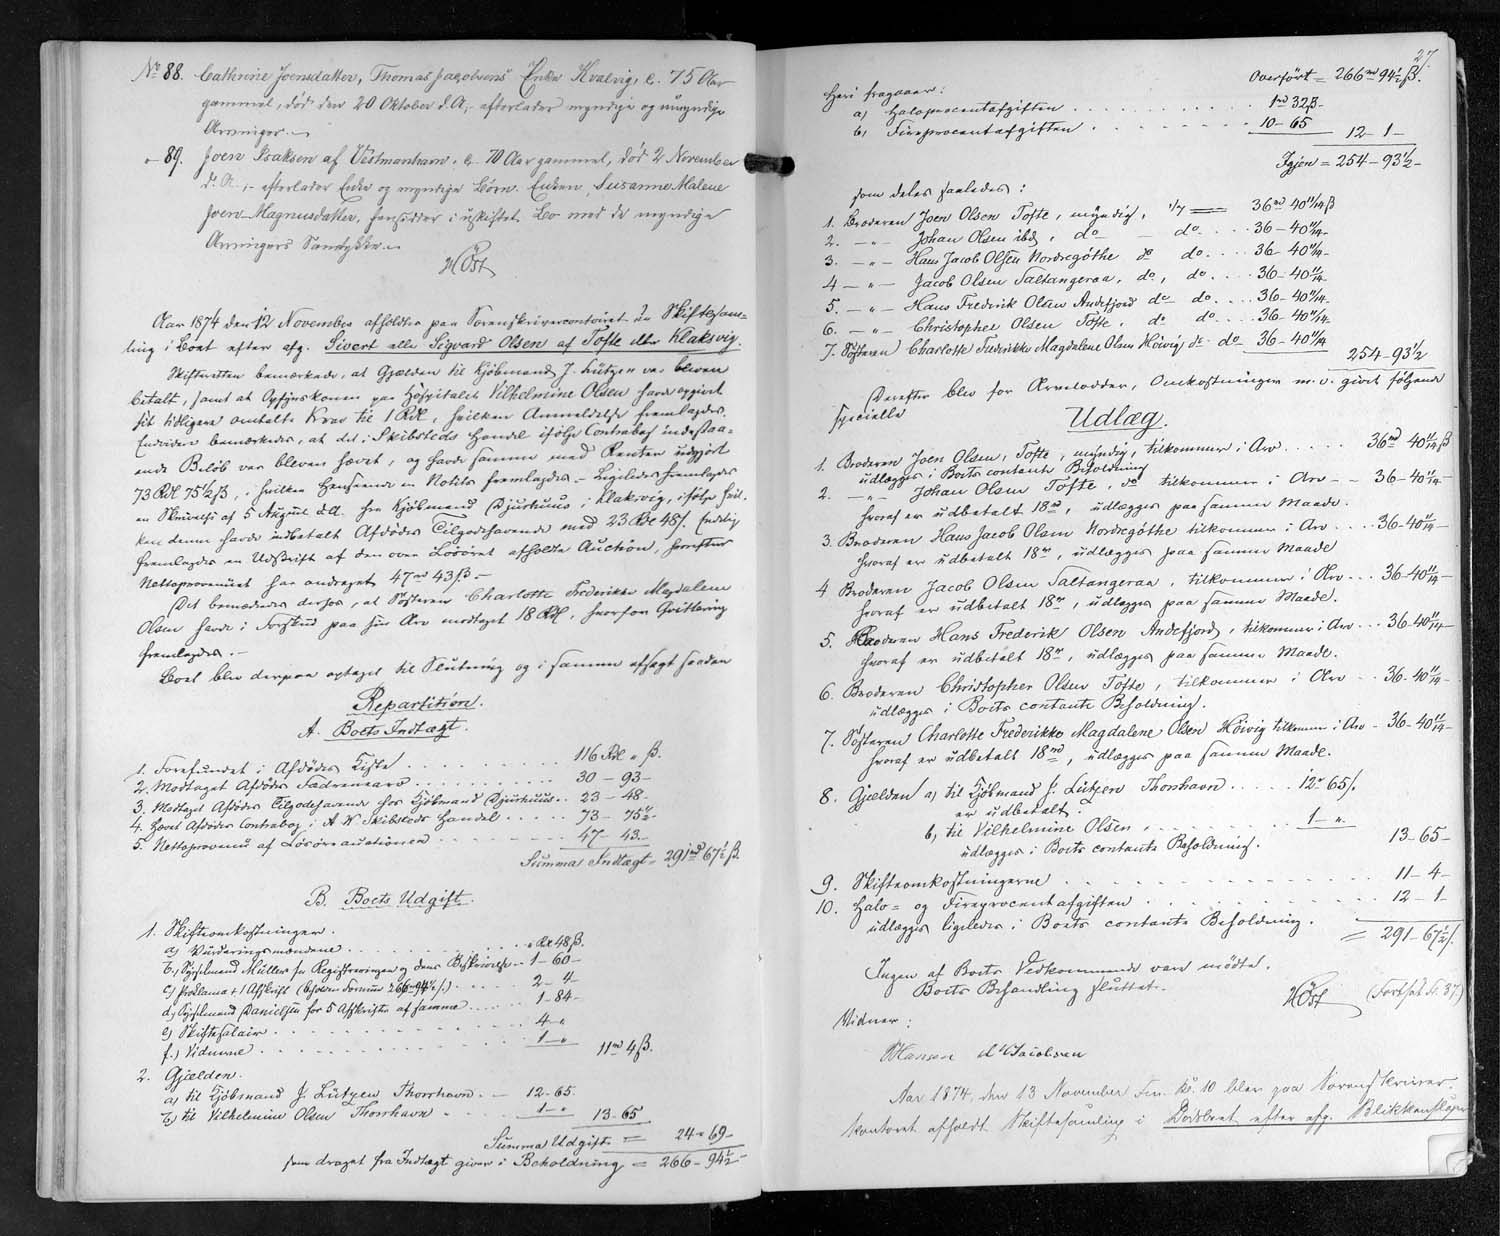 No 88. Cathrine Joensdatter, Thomas Jacobsens Enke Kvalvig, c. 75 Aar
gammel, død den 20 Oktober d.A., efterlader myndige og umyndige
Arvinger.
" 89. Joen Isaksen af Vestmanhavn, c. 70 Aar gammel, død 2 November
d.A., efterlader Enke og myndige Børn. Enken, Susanne Malene
Joen Magnusdatter, hensidder i uskiftet Bo med de myndige
Arvingers Samtykke.
Høst
Aar 1874 den 12 November afholdtes paa Sorenskrivercontoiret en Skiftesam-
ling i Boet efter afg. Sivert eller Sigvard Olsen af Tofte eller Klaksvig.
Skifteretten bemærkede, at Gjælden til Kjöbmand J. Lützen var bleven
betalt, samt at Opsynskonen paa Hospitalet Vilhelmine Olsen havde opgivet
sit tidligere omtalte Krav til 1 Rdl, hvilken Anmeldelse fremlagdes.
Endvidere bemærkedes, at det i Skibsteds Handel ifölge Contrabog indestaa-
ende Belöb var bleven hævet, og havde samme med Renter udgjort
73 Rdl 75½ β, i hvilken Henseende en Notits fremlagdes. - Ligeledes fremlagdes
en Skrivelse af 5 August d.A. fra Kjöbmand Djurhuus i Klaksvig, ifölge hvil-
ken denne havde indbetalt Afdödes Tilgodehavende med 23 Rdl 48 β. Endelig
fremlagdes en Udskrift af den over Lösöret afholdte Auction, hvorefter
Nettoprovenuet har andraget 47 rd 43 β -
Det bemærkedes derhos, at Sösteren Charlotte Frederikke Magdalene
Olsen havde i Forskud paa sin Arv modtaget 18 Rdl, hvorfor Qvittering
fremlagdes. -
Boet blev derpaa optaget til Slutning og i samme afsagt saadan
Repartition.
A. Boets Indtægt.
1. Forefundet i Afdödes Kiste . . . 116 Rdl " β.
2. Modtaget Afdödes Fædrenearv . . . 30 - 93 -
3. Modtaget Afdödes Tilgodehavende hos Kjöbmand Djurhuus . . 23 - 48 -
4. Hævet Afdödes Contrabog i A. W. Skibsteds Handel . . . 73 - 75½ -
5. Nettoprovenu af Lösöreauctionen . . . 47 - 43 -
Summa Indtægt = 291 rd 67½ β.
B. Boets Udgift.
1. Skifteomkostninger.
a) Vurderingsmændene . . . " Rdl 48 β.
b) Sysselmand Müller for Registreringen og dens Beskrivelse . . 1 - 60 -
c) Proklama + 1 Afskrift (beholden Formue 266 - 94½ β.) . . . 2 - 4 -
d) Sysselmand Danielsen for 5 Afskrifter af samme . . . 1 - 84 -
e) Skiftesalair . . . 4 - "
f.) Vidnerne . . . 1 - " 11 rd 4 β.
2. Gjælden.
a) til Kjöbmand J. Lützen Thorshavn . - 12 - 65.
b) til Vilhelmine Olsen Thorshavn . . . 1 - " 13 - 65
Summa Udgift = 24 - 69 -
som draget fra Indtægt giver i Beholdning = 266 - 94½ -
27.
Overfört = 266 rd 94½ β.
Heri fragaaer:
a) Haloprocentafgiften . . . 1 rd 32 β -
b) Fireprocentafgiften . . . 10 - 65 12 - 1 -
Igjen = 254 - 93½ -
som deles saaledes:
1. Broderen Joen Olsen Tofte, myndig, 1/7 = 36 rd 40 11/14 β
2. - " - Johan Olsen ibd, do - do . . . 36 - 40 11/14 -
3. - " - Hans Jacob Olsen Nordregöthe do do . . . 36 - 40 11/14 -
4 - " - Jacob Olsen Saltangeraa, do, do . . . 36 - 40 11/14 -
5. - " - Hans Frederik Olsen Andefjord do do . . . 36 - 40 11/14 -
6. - " - Christopher Olsen Tofte, do do . . . 36 - 40 11/14 -
7. Sösteren Charlotte Frederikke Magdalene Olsen Höivig do do 36 - 40 11/14 254 - 93½
Derefter blev for Arvelodder, Omkostninger m. v. givet fölgende
specielle
Udlæg.
1. Broderen Joen Olsen, Tofte, myndig, tilkommer i Arv . . . 36 rd 40 11/14 β
udlægges i Boets contante Beholdning
2. - " - Johan Olsen Tofte, do tilkommer i Arv - - 36 - 40 11/14 -
hvoraf er udbetalt 18 rd, udlægges paa samme Maade.
3. Broderen Hans Jacob Olsen Nordregöthe tilkommer i Arv . . . 36 - 40 11/14 -
hvoraf er udbetalt 18 rd, udlægges paa samme Maade
4 Broderen Jacob Olsen Saltangeraa, tilkommer i Arv . . . 36 - 40 11/14 -
hvoraf er udbetalt 18 rd, udlægges paa samme Maade.
5. Broderen Hans Frederik Olsen Andefjord, tilkommer i Arv . . . 36 - 40 11/14 -
hvoraf er udbetalt 18 rd, udlægges paa samme Maade.
6. Broderen Christopher Olsen Tofte, tilkommer i Arv . . 36 - 40 11/14 -
udlægges i Boets contante Beholdning.
7. Sösteren Charlotte Frederikke Magdalene Olsen Höivig tilkommer i Arv - 36 - 40 11/14 -
hvoraf er udbetalt 18 rd, udlægges paa samme Maade.
8. Gjælden a) til Kjöbmand J. Lützen Thorshavn . . . 12 - 65 β.
er udbetalt.
b) til Vilhelmine Olsen, . . . 1 - ". 13 - 65 -
udlægges i Boets contante Beholdning.
9. Skifteomkostningerne . . . 11 - 4 -
10. Halo- og Fireprocentafgiften . . . 12 - 1 -
udlægges ligeledes i Boets contante Beholdning. = 291 - 67½ β.
Ingen af Boets Vedkommende vare mödte.
Boets Behandling sluttet.
Høst (Fortsat S. 37)
Vidner:
Hansen Jacobsen
Aar 1874, den 13 November Fm. Kl. 10 blev paa Sorenskriver-
kontoret afholdt Skiftesamling i Dödsboet efter afg. Blikkenslager